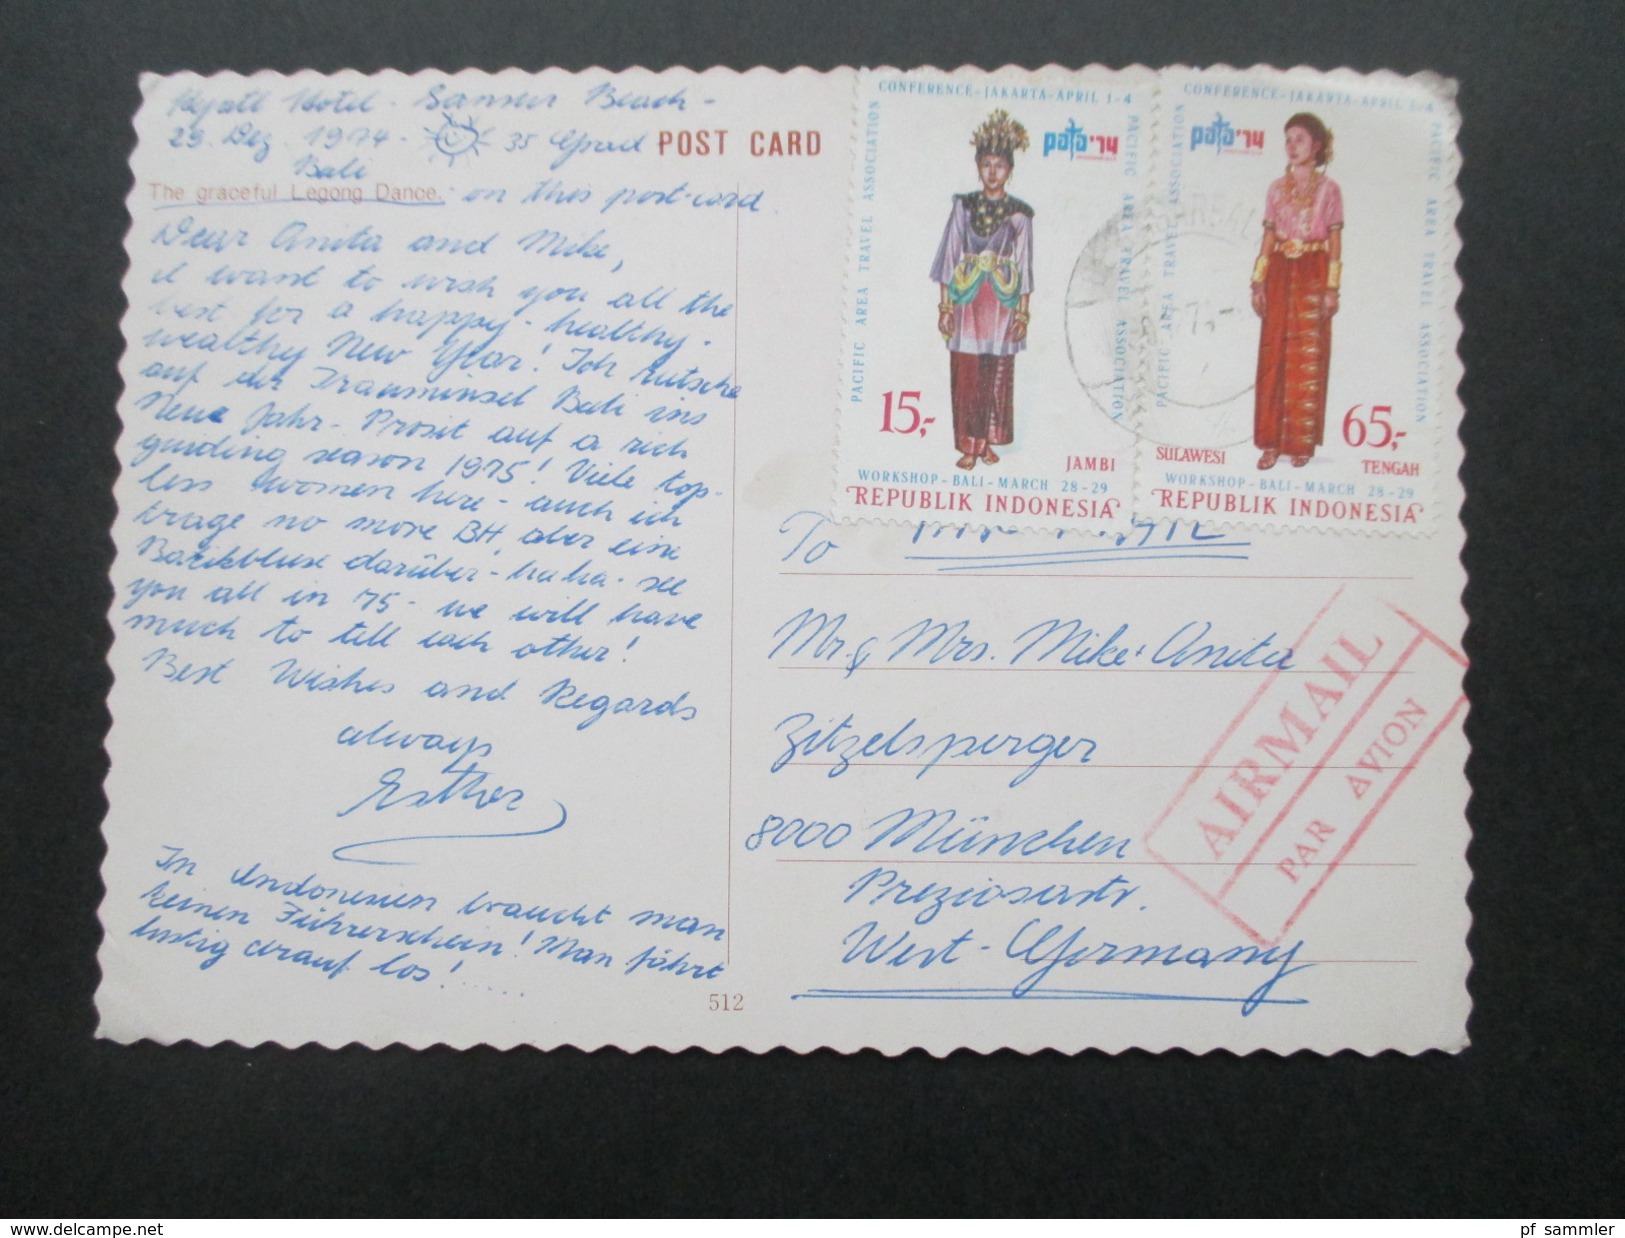 Hyatt Hotel - Sanur Beach -
29. Dez. 1974 - 35 Grad
Bali
POST CARD
The graceful Legong Dance. on this post-card
Dear Anita and Mike,
I want to wish you all the
best for a happy - healthy -
wealthy New Year! Ich rutsche
auf der Trauminsel Bali ins
Neue Jahr - Prosit auf a rich
guiding season 1975! Viele top-
less women here - auch ich
trage no more BH, aber eine
Batikbluse darüber - ha ha - see
you all in 75 - we will have
much to tell each other!
Best Wishes and Regards
always
Esther
In Indonesien braucht man
keinen Führerschein! Man fährt
lustig drauf los! .....
512
CONFERENCE - JAKARTA - APRIL 1-4
PACIFIC AREA TRAVEL ASSOCIATION
PACIFIC AREA TRAVEL ASSOCIATION
pata '74
15,-
JAMBI
WORKSHOP - BALI - MARCH 28-29
REPUBLIK INDONESIA
CONFERENCE - JAKARTA - APRIL 1-4
PACIFIC AREA TRAVEL ASSOCIATION
PACIFIC AREA TRAVEL ASSOCIATION
pata '74
65,-
SULAWESI
TENGAH
WORKSHOP - BALI - MARCH 28-29
REPUBLIK INDONESIA
To
Mr. & Mrs. Mike + Anita
Zitzelsperger
8000 München
Preziosastr.
West-Germany
AIRMAIL
PAR AVION
www.delcampe.net
pf_sammler